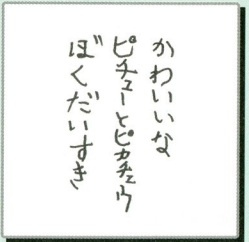 かわいいな
ピチューとピカチュウ
ぼくだいすき